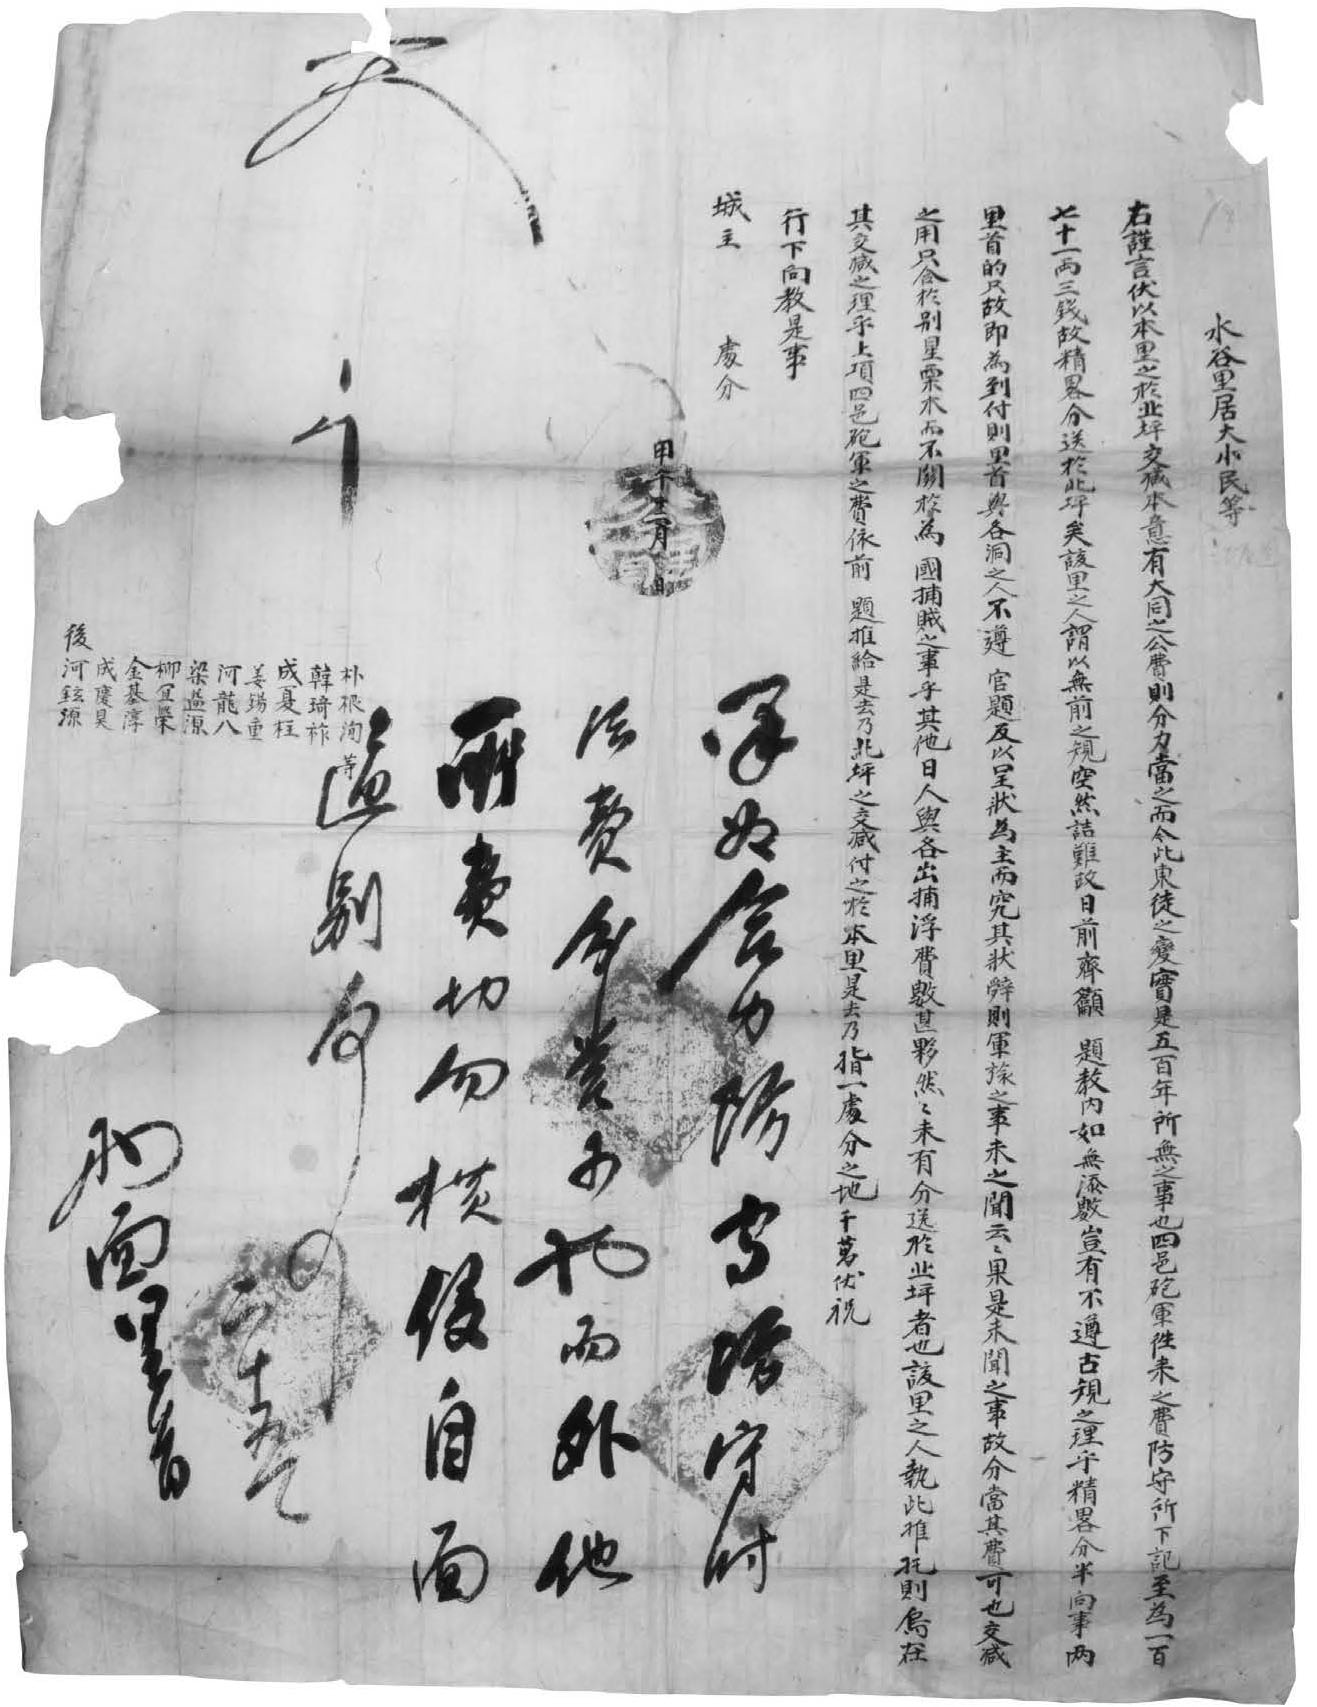 水谷里居大小民等
右謹言伏以本里之於北坪交減本意有大同之公費則分力當之而今此東徒之變實是五百年所無之事也四邑砲軍往來之費防守所下記至為一百
七十一兩三錢故精畧分送於北坪矣該里之人謂以無前之規空然詰難故日前齊籲 題教內如無添數豈有不遵古規之理乎精畧分半向事兩
里首的只故即為到付則里首與各洞之人不遵 官題反以呈狀為主而究其狀辭則軍掾之事未之聞云云果是未聞之事故分當其費可也交減
之用只含於別星栗木而不關於為 國捕賊之事乎其他日人與各出捕浮費數甚夥然々未有分送於北坪者也該里之人執此推托則烏在
其交減之理乎上項四邑砲軍之費依前 題推給是去乃北坪之交減付之於本里是去乃指一處分之地千萬伏祝
行下向教是事
城主 處分
甲午 月 日
朴根洵 等
韓琦祚
成夏柱
姜錫重
河龍八
梁益源
柳宜榮
金基淳
成慶昊
後 河鉉源
合力防守防守時
浮費 當 而外他
所費切勿橫侵自面
區別向
二十五
兩面里首